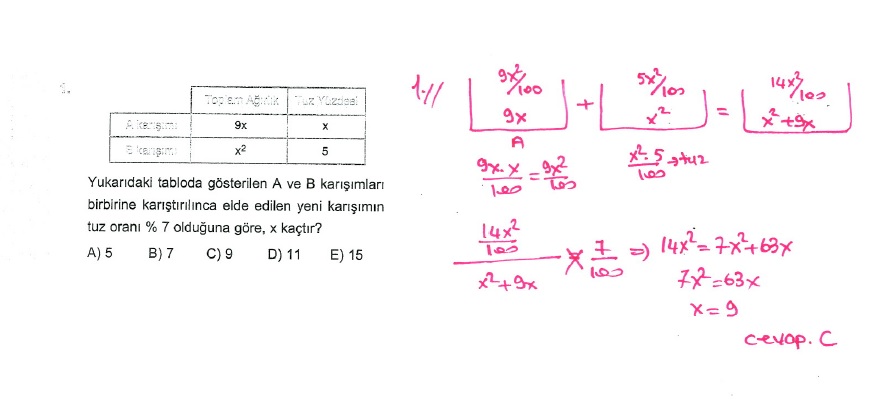 1.
Toplam Ağırlık Tuz Yüzdesi
A karışımı 9x x
B karışımı x² 5
Yukarıdaki tabloda gösterilen A ve B karışımları
birbirine karıştırılınca elde edilen yeni karışımın
tuz oranı % 7 olduğuna göre, x kaçtır?
A) 5 B) 7 C) 9 D) 11 E) 15
1.//
9x²/100 5x²/100 14x²/100
9x + x² = x²+9x
A
9x.x/100 = 9x²/100 x².5/100 → tuz
14x²/100 / x²+9x = 7/100 ⇒ 14x² = 7x²+63x
7x² = 63x
x = 9
cevap. C